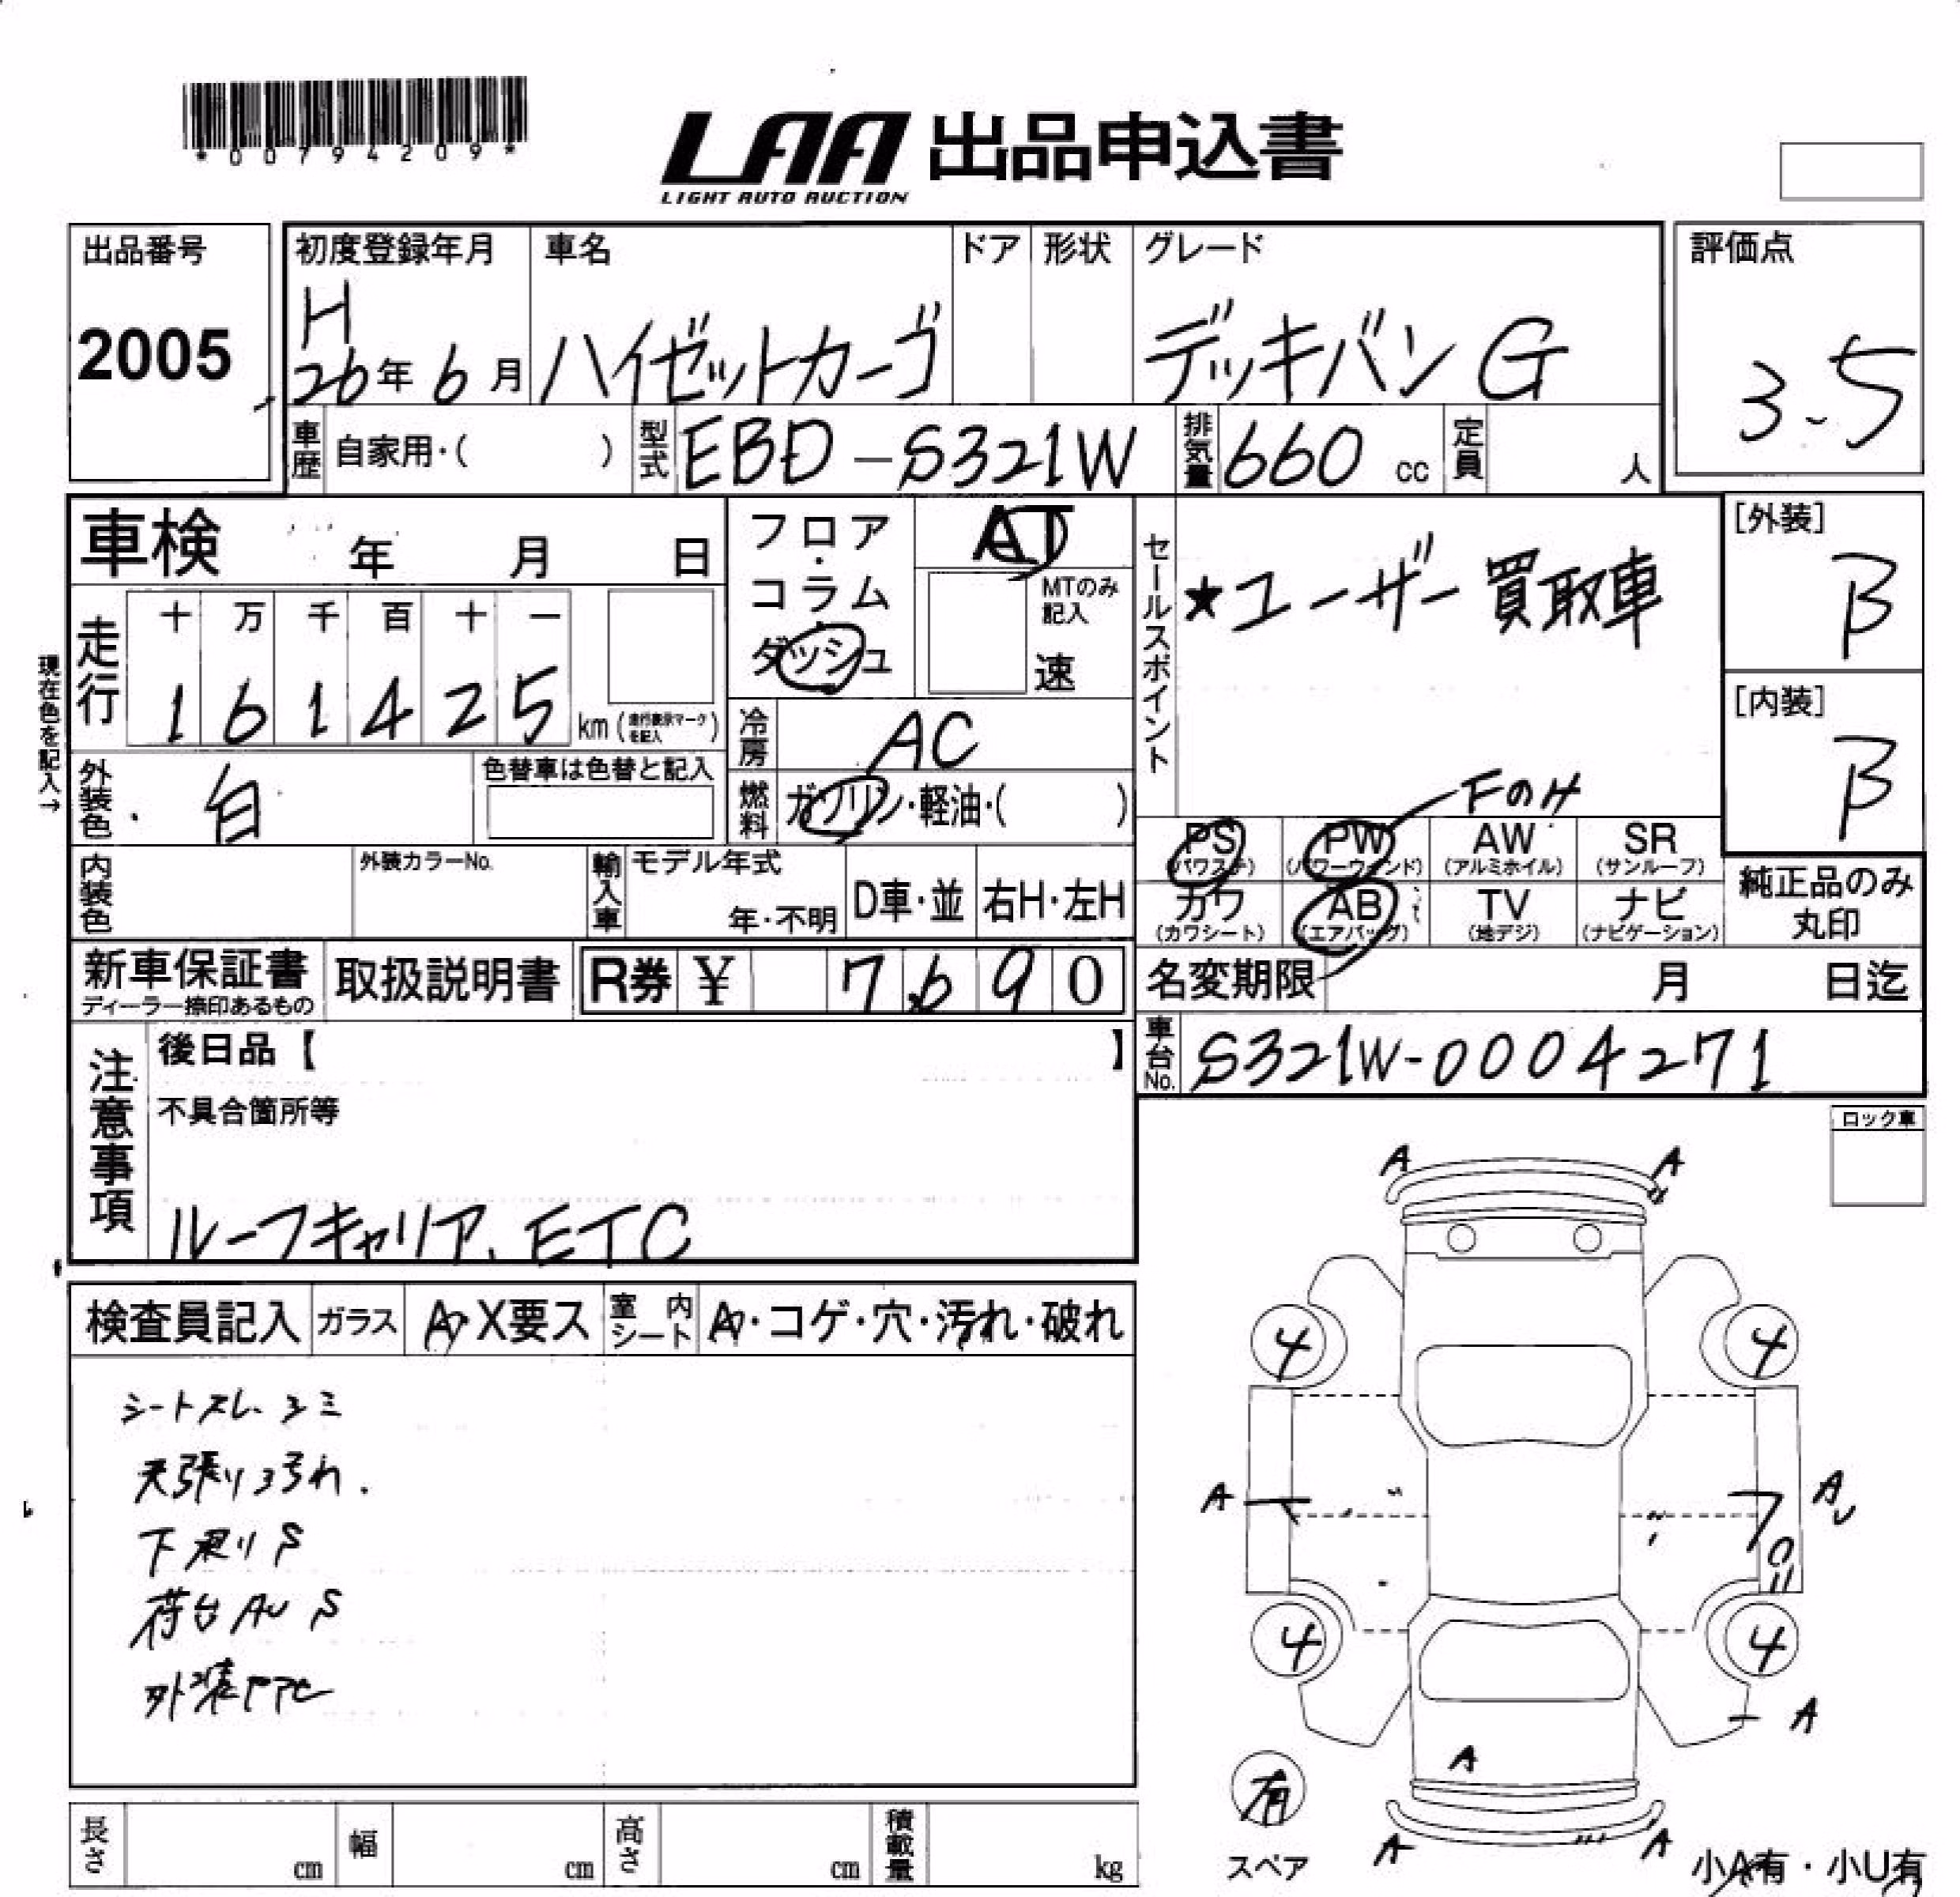 *00794209*
LAA 出品申込書
LIGHT AUTO AUCTION
出品番号
2005
初度登録年月
H
26年6月
車名
ハイゼットカーゴ
ドア
形状
グレード
デッキバン G
評価点
3.5
車歴
自家用・( )
型式
EBD-S321W
排気量
660 cc
定員
人
車検 年 月 日
フロア・コラム・ダッシュ
AT
MTのみ記入
速
セールスポイント
★ユーザー買取車
[外装]
B
[内装]
B
現在色を記入→
走行
十 万 千 百 十 一
1 6 1 4 2 5
km (走行表示マークを記入)
冷房
AC
燃料
ガソリン・軽油・( )
外装色
白
色替車は色替と記入
FのH
PS
(パワステ)
PW
(パワーウィンド)
AW
(アルミホイル)
SR
(サンルーフ)
カワ
(カワシート)
AB
(エアバッグ)
TV
(地デジ)
ナビ
(ナビゲーション)
純正品のみ
丸印
内装色
外装カラーNo.
輸入車
モデル年式
年・不明
D車・並
右H・左H
新車保証書
ディーラー捺印あるもの
取扱説明書
R券 ¥ 7,690
名変期限 月 日迄
車台No.
S321W-0004271
注意事項
後日品【 】
不具合箇所等
ルーフキャリア、ETC
ロック車
検査員記入
ガラス
A・X要ス
室内シート
A・コゲ・穴・汚れ・破れ
シートスレ、シミ
天張りヨゴれ.
下廻りS
荷台AU S
外装
A A
4 4
A AU
4 4
A
A
A A
有
スペア
小A有・小U有
長さ cm
幅 cm
高さ cm
積載量 kg